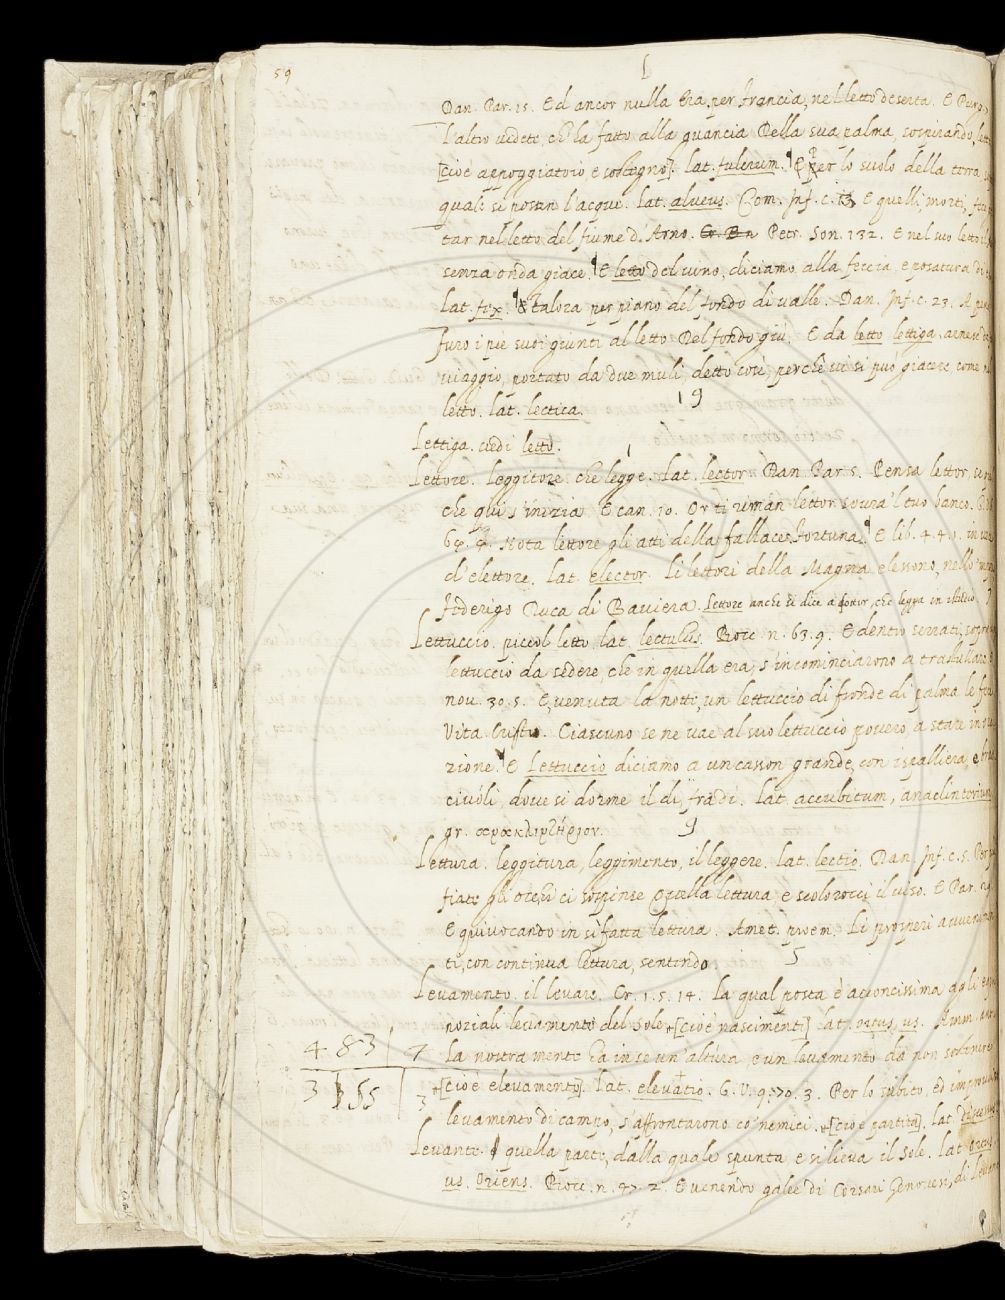 59
L
Dan. Par. 15. Ed ancor nulla Era, per Francia, nel letto deserta. E Purg. 7
L'altro vedete, ch' ha fatto alla guancia Della sua palma, sospirando, letto
[cioè appoggiatoio, e sostegno]. lat. fulcrum. E per lo suolo della terra
quale si posan l'acque. Lat. alveus. Com. Inf. c. 13. E quelli, morti, fece
tar nel letto del fiume d'Arno. Petr. Son. 132. E nel suo letto il
senza onda giace. E letto del vino, diciamo alla feccia, e posatura di
Lat. fex. E talora per piano del fondo di valle. Dan. Inf. c. 23. A pena
Furo i piè suoi giunti al letto Del fondo giù. E da letto lettiga, arnese da
viaggio, portato da due muli, detto così, perchè vi si può giacere, come
letto. lat. lectica. 19
Lettiga. vedi letto. 1
Lettore. Leggitore. che legge. Lat. lector. Dan. Par. 5. Pensa lettor, se
che qui s'inizia. E can. 10. Or ti riman lettor sovra'l tuo banco.
Nota lettore gli atti della fallace Fortuna. E lib. 4. 4. 1. in
d'elettore. Lat. elector. Li lettori della Magna elessono, nello
Federigo Duca di Baviera. Lettore anche si dice a dottor, che legga in istudio 7
Lettuccio. piccol letto, lat. lectulus. Bocc. n. 63. 9. E dentro serrati, sopra
lettuccio da sedere, che in quella era, s'incominciarono a trastullare. E
nov. 30. 5. E, venuta la notte, un lettuccio di fronde di palma le
Vita Cristo. Ciascuno se ne vae al suo lettuccio povero, a stare in
zione. E Lettuccio diciamo a un casson grande, con ispalliera, e
civóli, dove si dorme il dì, fradì. Lat. accubitum, anaclintorium
gr. 9
Lettura. leggitura, leggimento, il leggere. Lat. lectio. Dan. Inf. c. 5. Per
fiate gli occhi ci sospinse Quella lettura, e scolorocci il viso. E Par.
E quivocando in sì fatta lettura. Amet. proem. Li prosperi avvenimen
ti, con continua lettura, sentendo 5
Levamento. il levare. Cr. 1. 5. 14. La qual posta è acconcissima agli
noziali levamento del Sole [cioè nascimenti] lat. ortus, us. Amm.
La nostra mente ha in se un altura, e un levamento da non sostenere
[cioè elevamento]. Lat. elevatio. G. V. 9. 70. 3. Per lo subito, ed
levamento di campo, s'affrontarono co' nemici. [cioè partita]. Lat.
Levante. quella parte, dalla quale spunta, e si lieva il Sole. Lat. ortus
us. Oriens. Bocc. n. 47. 2. E venendo galee di Corsari Genovesi, di Levan
483 7
3 155 3